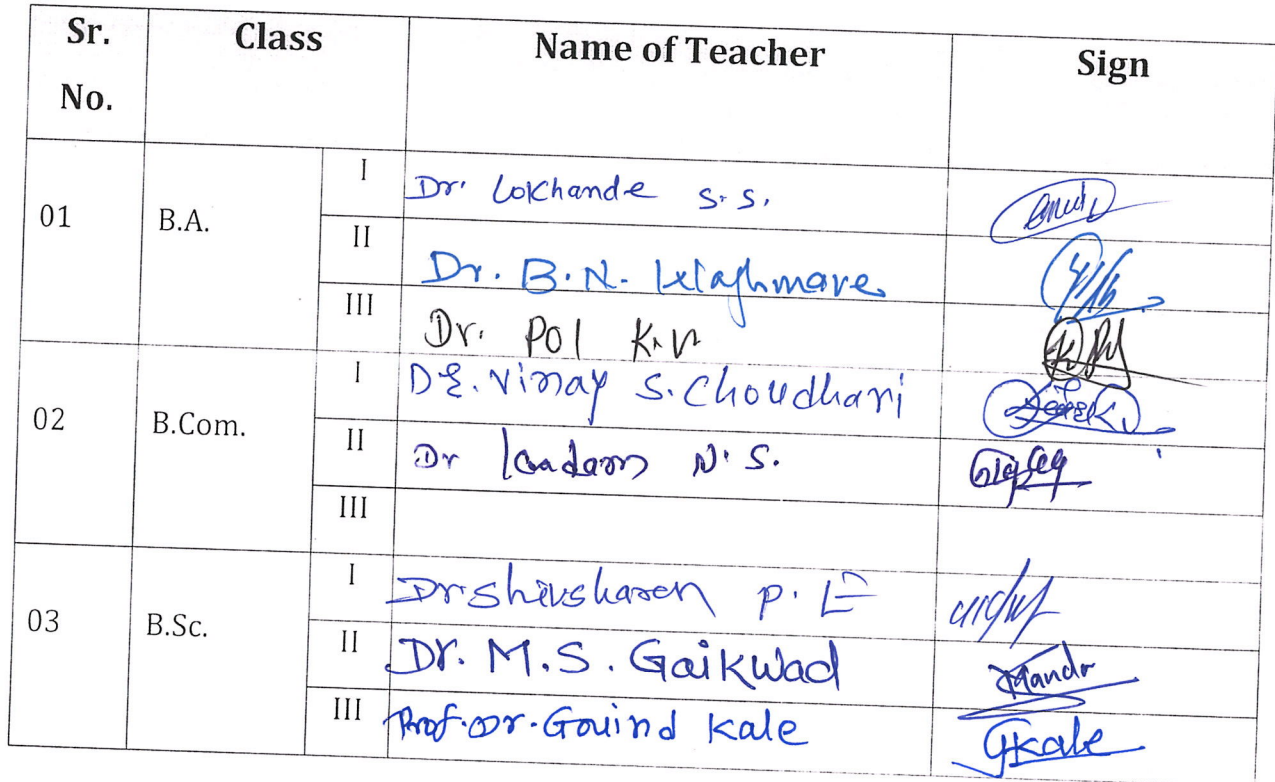 Sr. No. Class Name of Teacher Sign
01 B.A. I Dr. Lokhande S.S.
II Dr. B.N. Waghmare
III Dr. Pol K.V
02 B.Com. I Dr. Vinay S. Choudhari
II Dr Kadam N.S.
III
03 B.Sc. I Dr Shivsharan P.
II Dr. M.S. Gaikwad
III Prof. Dr. Govind Kale GKale